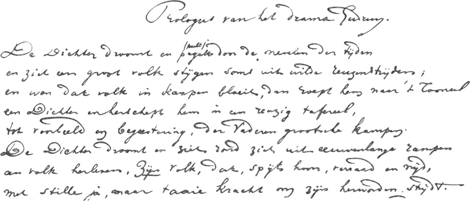 Prologus van het drama Gudrun.
De Dichter droomt en door de nevelen der tijden
en ziet een groot volk stijgen soms uit wilde reuzenstrijden;
en wen dat volk in kampen bloeit, dan roept hem naar 't Tooneel
een Dichter en herschept hem in een reuzig tafereel,
tot voorbeeld en begeestering, der Vaderen grootsche kampen.
De Dichter droomt en ziet rond zich, uit eeuwenlange rampen
een volk herleven, Zijn volk, dat, spijts hoon, verraad en nijd,
met stille ja, maar taaie kracht om zijn herworden strijdt.